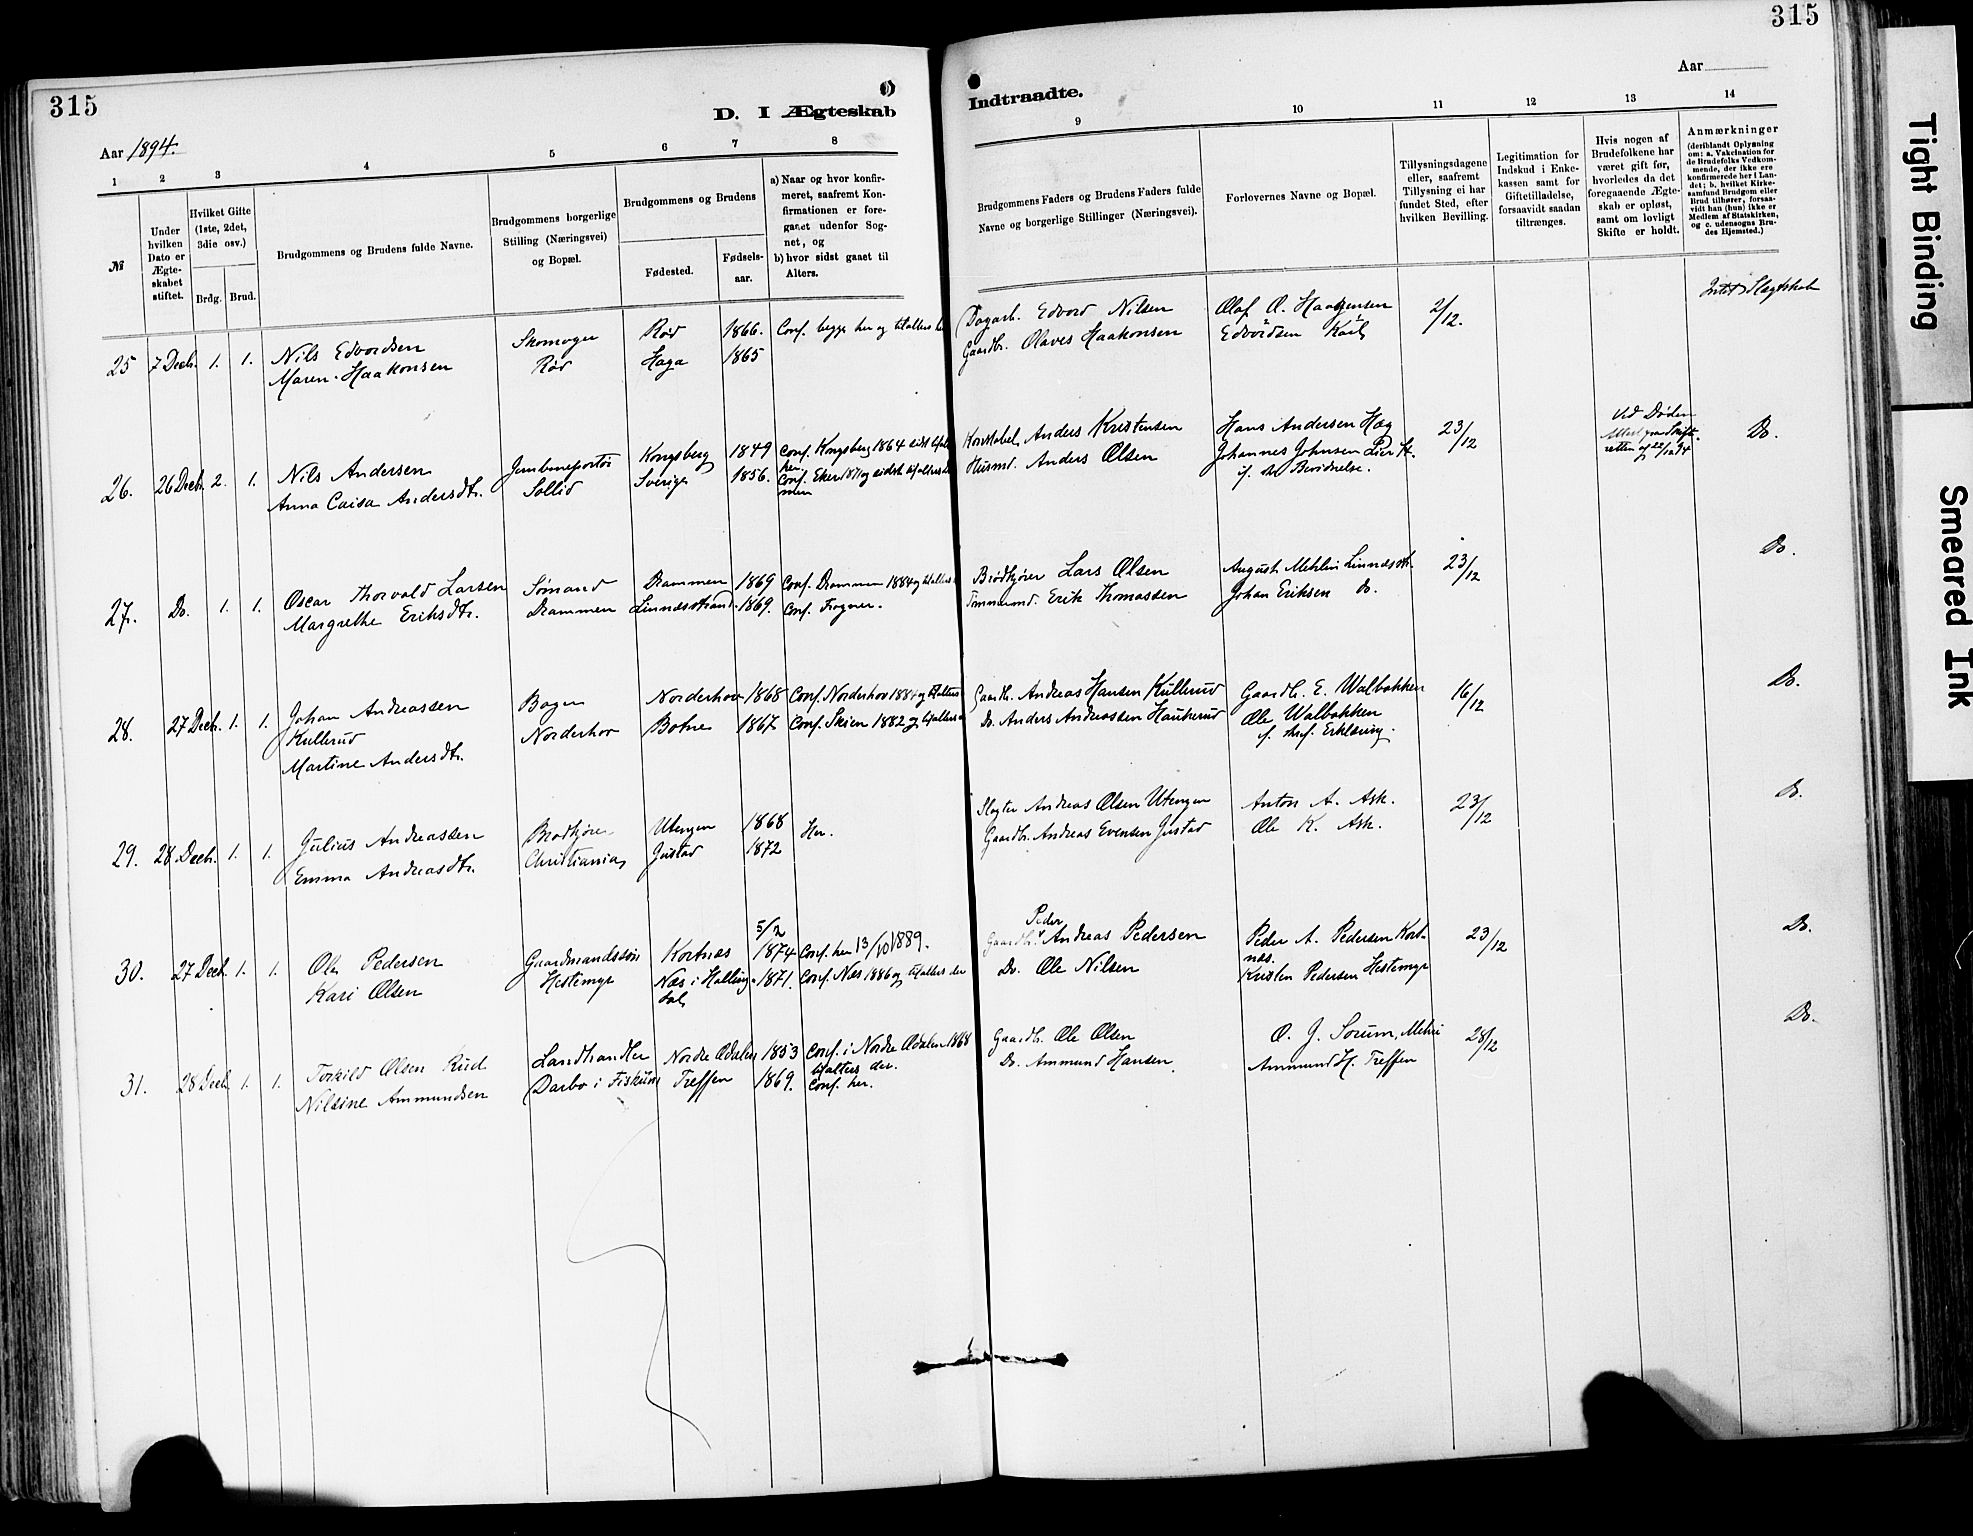 315
D. I Ægteskab
Aar 1894.
1 2 3 4 5 6 7 8
№
Under hvilken Dato er Ægte-skabet stiftet.
Hvilket Gifte (1ste, 2det, 3die osv.)
Brdg. Brud.
Brudgommens og Brudens fulde Navne.
Brudgommens borgerlige Stilling (Næringsvei) og Bopæl.
Brudgommens og Brudens
Fødested.
Fødsels-aar.
a) Naar og hvor konfir-meret, saafremt Kon-firmationen er fore-gaaet udenfor Sog-net, og
b) hvor sidst gaaet til Alters.
25 7 Decb. 1. 1. Nils Edvardsen
Maren Haakonsen
Skomager
Rød
Rød 1866.
Haga 1865
Conf. begge her og tilalters her
26. 26 Decb. 2. 1. Nils Andersen
Anna Caisa Andersdtr.
Jernbaneportør
Sollid
Kongsberg 1849
Sverige 1856.
Conf. Kongsberg 1864 sidst tilalters
her
Conf. Eker 1871 og sidst tilalters
27. Do. 1. 1. Oscar Thorvald Larsen
Margrethe Eriksdtr.
Sømand
Drammen
Drammen 1869
Linnæsstrand 1869.
Conf. Drammen 1884 og tilalters
Conf. Frogner.
28. 27 Decb. 1. 1. Johan Andreassen
Kullerud
Martine Andersdtr.
Bager
Norderhov
Norderhov 1868
Botne 1867
Conf. Norderhov 1884 og tilalters
Conf. Skien 1882 og tilalters
29. 28 Decb. 1. 1. Julius Andreassen
Emma Andreasdtr.
Brødkjører
Christiania
Utengen 1868
Justad 1872
Her.
30. 27 Decb. 1. 1. Ole Pedersen
Kari Olsen
Gaardmandssøn
Hestemyr
5/2
Kortnæs 1874
Næs i Halling- 1871.
dal
Conf. her 13/10 1889.
Conf. Næs 1886 og tilalters der
31. 28 Decb. 1. 1. Torkild Olsen Rud
Nilsine Ammundsen
Landhandler
Darbo i Fiskum
Nordre Odalen 1853
Treffen 1869.
Conf. i Nordre Odalen 1868
tilalters der.
Conf. her.
315
Indtraadte.
Aar
9 10 11 12 13 14
Brudgommens Faders og Brudens Faders fulde Navne og borgerlige Stillinger (Næringsvei).
Forlovernes Navne og Bopæl.
Tillysningsdagene eller, saafremt Tillysning ei har fundet Sted, efter hvilken Bevilling.
Legitimation for Indskud i Enke-kassen samt for Giftetilladelse, forsaavidt saadan tiltrænges.
Hvis nogen af Brudefolkene har været gift før, hvorledes da det foregaaende Ægte-skab er opløst, samt om lovligt Skifte er holdt.
Anmærkninger
(deriblandt Oplysning om: a. Vakcination for de Brudefolks Vedkom-mende, der ikke ere konfirmerede her i Lan-det; b. hvilket Kirke-samfund Brudgom eller Brud tilhører, forsaa-vidt han (hun) ikke er Medlem af Statskirken, og c. udensogns Bru-des Hjemsted.)
Dagarb. Edvard Nilsen
Gaardbr. Olaves Haakonsen
Olaf O. Haagensen
Edvardsen
2/12.
Intet Slægtskab
Konstabel Anders Kristensen
Husmd. Anders Olsen
Hans Andersen Hæg
Johannes Johnsen Lier St.
23/12
Ved Døden
Do.
Brødkjører Lars Olsen
Tømmermd. Erik Thomassen
August Mehlin Linnæsstr.
Johan Eriksen Do.
23/12
Do.
Gaardb. Andreas Hansen Kullerud
Do. Anders Andreassen Haukerud
Gaardb. E. Walbakken
Ole Walbakken
f. skrf. Erklæring.
16/12
Do.
Slagter Andreas Olsen Utengen
Gaardbr. Andreas Evensen Justad
Anton A. Ask.
Ole K. Ask.
23/12
Do.
Peder
Gaardbr. Andreas Pedersen
Do. Ole Nilsen
Peder A. Pedersen Kort-
næs.
Kristen Pedersen Hestemyr
23/12
Do.
Gaardbr. Ole Olsen
Do. Ammund Hansen
O. J. Sorum,
Ammund H. Treffen
28/12
Do.
Tight Binding
Smeared Ink